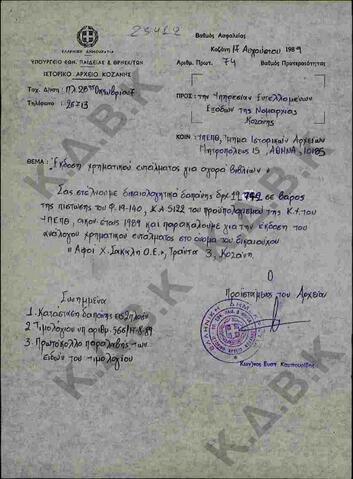 29412
Βαθμός Ασφαλείας
ΕΛΛΗΝΙΚΗ ΔΗΜΟΚΡΑΤΙΑ
Κοζάνη 17 Αυγούστου 1989
ΥΠΟΥΡΓΕΙΟ ΕΘΝ. ΠΑΙΔΕΙΑΣ & ΘΡΗΣΚ/ΤΩΝ
Αριθμ. Πρωτ. 74 Βαθμός Προτεραιότητας
ΙΣΤΟΡΙΚΟ ΑΡΧΕΙΟ ΚΟΖΑΝΗΣ
Ταχ. Δ/νση : Πλ. 28ης Οκτωβρίου 7
Τηλέφωνο : 26713
ΠΡΟΣ: την Υπηρεσία Εντελλομένων
Εξόδων της Νομαρχίας
Κοζάνης
ΚΟΙΝ: ΥΠΕΠΘ, Τμήμα Ιστορικών Αρχείων
Μητροπόλεως 15, ΑΘΗΝΑ, 10185
ΘΕΜΑ: "Έκδοση χρηματικού εντάλματος για αγορά βιβλίων"
Σας στέλνουμε δικαιολογητικά δαπάνης δρχ. 19.740 σε βάρος
της πίστωσης του Φ. 19-140, Κ.Α. 5122 του προϋπολογισμού της Κ.Υ. του
ΥΠΕΠΘ, οικον. έτους 1989 και παρακαλούμε για την έκδοση του
ανάλογου χρηματικού εντάλματος στο όνομα του δικαιούχου
"Αφοί Χ. Σακκλή Ο.Ε.", Τράντα 3, Κοζάνη.
Ο
Προϊστάμενος του Αρχείου
Συνημμένα
1. Κατάσταση δαπάνης εις διπλούν
2. Τιμολόγιο υπ' αριθμ. 566/17-8-89
3. Πρωτόκολλο παραλαβής των
ειδών του τιμολογίου
Κων/νος Ευστ. Καμπουρίδης
Κ.Δ.Β.Κ
Κ.Δ.Β.Κ
Κ.Δ.Β.Κ